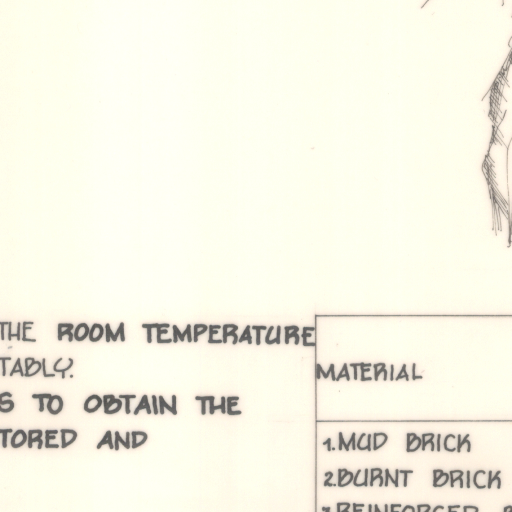 THE ROOM TEMPERATURE
TABLY.
S TO OBTAIN THE
TORED AND
MATERIAL
1.MUD BRICK
2.BURNT BRICK
3.REINFORCED